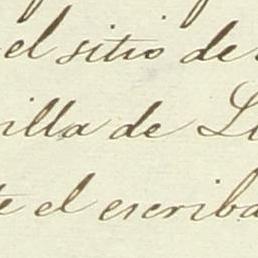 el sitio de
illa de
te el escriba